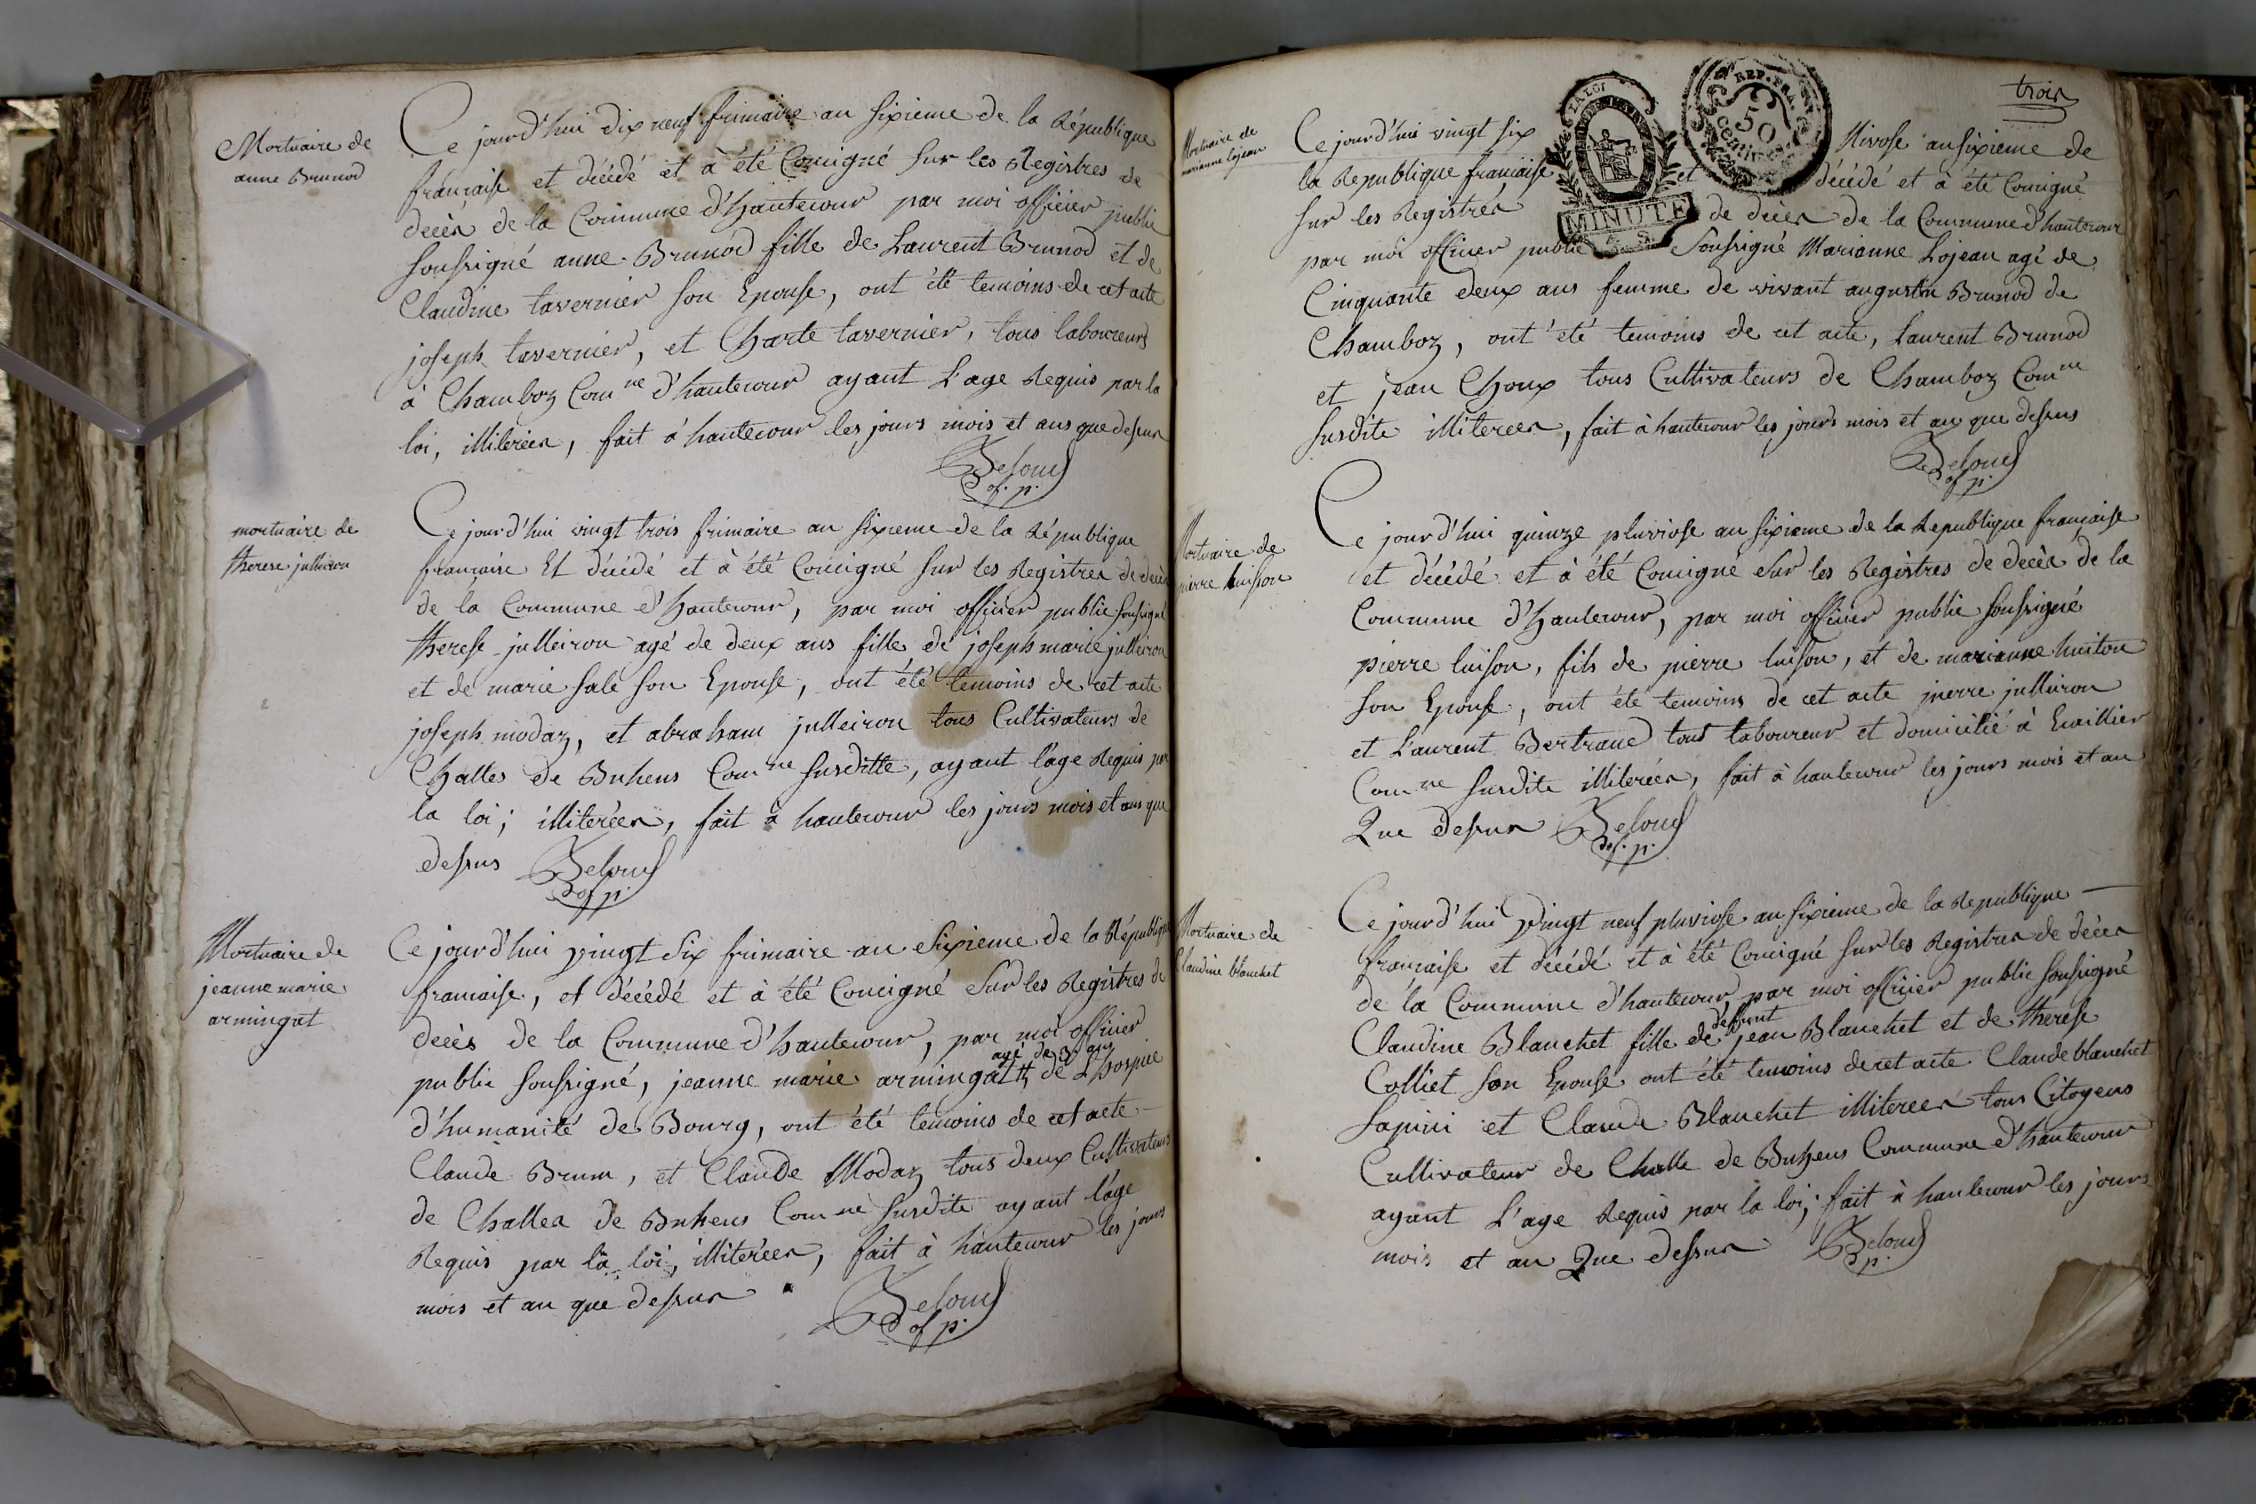 Mortuaire de
anne Brunod
Ce jourd'hui dix neuf frimaire an sixieme de la République
francaise et décédé et à été Concigné sur les Registres de
decès de la Commune d'hautecour par moi officier public
soussigné anne Brunod fille de Laurent Brunod et de
Claudine tavernier son Epouse, ont été temoins de cet acte
joseph tavernier, et Charle tavernier, tous laboureurs
à Chamboz Com.ne d'hautecour ayant L'age Requis par la
loi, illiterées, fait à hautecour les jours mois et ans que dessus
of. p.
mortuaire de
therese julleiron
Ce jourd'hui vingt trois frimaire an sixieme de la République
francaise Et décédé et à été Concigné sur les Registres de decès
de la Commune d'hautecour, par moi officier public soussigné
therese julleiron agé de deux ans fille de joseph marie julleiron
et de marie sale son Epouse, ont été temoins de cet acte
joseph modaz, et abraham julleiron tous Cultivateurs de
Challes de Buhens Com.ne susditte, ayant l'age Requis par
la loi; illiterées, fait à hautecour les jours mois et ans que
dessus
of p.
Mortuaire de
jeanne marie
armingat
Ce jourd'hui vingt six frimaire an sixieme de la République
francaise, et décédé et à été Concigné sur les Registres de
decès de la Commune d'hautecour, par moi officier
agé de 3 ans
public soussigné, jeanne marie armingat de L'hospice
d'humanité de Bourg, ont été temoins de cet acte
Claude Brun, et Claude Modaz tous deux Cultivateurs
de Challes de Buhens Com ne susdite ayant l'age
Requis par la loi, illiterées, fait à hautecour les jours
mois et an que dessus
of p.
trois
LA LOI
MINUTE
REP. FRA.
50
centimes
Mortuaire de
marianne Lojean
Ce jourd'hui vingt six Nivose an sixieme de
la Republique francaise et décédé et à été Concigné
sur les Registres de decès de la Commune d'hautecour
par moi officier public soussigné Marianne Lojean agé de
Cinquante deux ans femme de vivant augustin Brunod de
Chamboz, ont été temoins de cet acte, Laurent Brunod
et jean Choux tous Cultivateurs de Chamboz Com.ne
susdite illiterees, fait à hautecour les jours mois et an que dessus
of p.
Mortuaire de
pierre luison
Ce jourd'hui quinze pluviose an sixieme de la Republique francaise
et décédé et à été Concigné sur les Registres de decès de la
Commune d'hautecour, par moi officier public soussigné
pierre luison, fils de pierre luison, et de marianne
son Epouse, ont été temoins de cet acte pierre julleiron
et Laurent Bertrand tous laboureur et domicilié à
Com ne susdite illiterées, fait à hautecour les jours mois et an
Que dessus
of. p.
Mortuaire de
Claudine blanchet
Ce jourd'hui vingt neuf pluviose an sixieme de la Republique
francaise et décédé et à été Concigné sur les Registres de décès
de la Commune d'hautecour, par moi officier public soussigné
deffunt
Claudine Blanchet fille de jean Blanchet et de therese
Colliet son Epouse ont été temoins de cet acte Claude blanchet
et Claude Blanchet illiterees tous Citoyens
Cultivateur de Challe de Buhens Commune d'hautecour
ayant L'age Requis par la loi; fait à hautecour les jours
mois et an Que dessus
p.